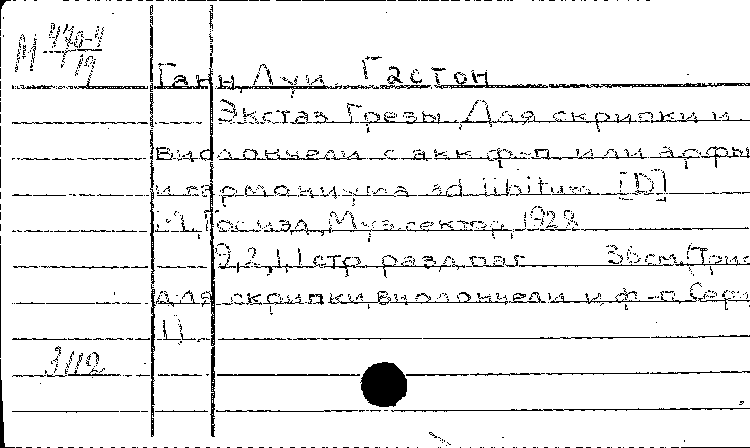 М 470-4
19
Ганн, Луи Гастон
Экстаз. Грезы. Для скрипки и
виолончели с акк ф-п. или арфы
и гармониума ad libitum [D]
М., Госизд., Муз. сектор, 1928
9,2,1,1 стр. разд. паг. 36 см. (Трио
для скрипки, виолончели и ф-п. Сери
1)
3112